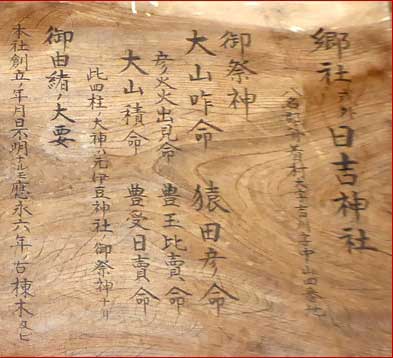 郷社 日吉神社
八名郡舟着村大字吉川字中山四番地
御祭神
大山咋命 猿田彦命
彦火火出見命 豊玉比賣命
大山積命 豊受日賣命
此四柱ノ大神ハ元伊豆神社ノ御祭神ナリ
御由緒ノ大要
本社創立ノ年月日不明ナルモ應永六年ノ古棟木及ビ